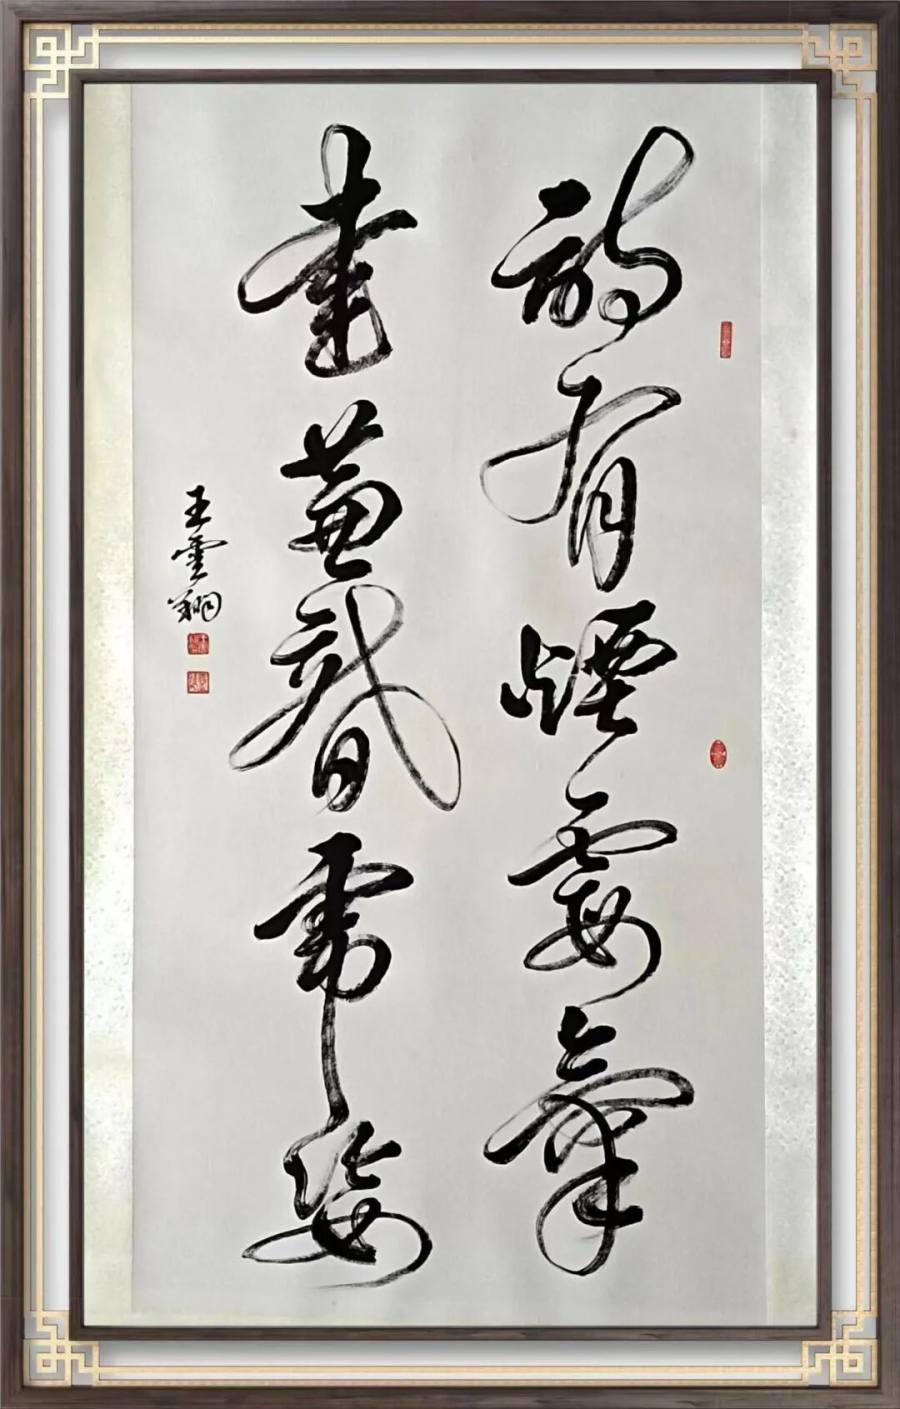 有煙霞氣
書兼龍虎姿
王雲翔